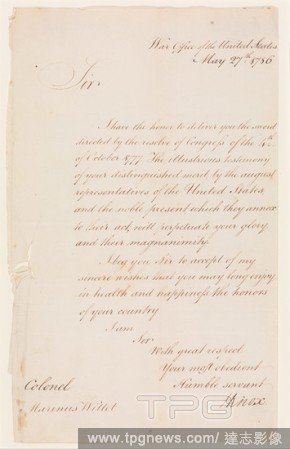 War Office of the United States
May 27th 1786
Sir
I have the honor to deliver you the sword
directed by the resolve of Congress of the 4th
of October 1777. The illustrious testimony
of your distinguished merit by the august
representatives of the United States
and the noble present which they annex
to their act, will perpetuate your glory
and their magnanimity.
May you Sir to accept of my
sincere wishes that you may long enjoy
in health and happiness the honors
of your country
I am
Sir
With great respect
Your most obedient
Humble servant
HKnox
Colonel
Marinus Willet
TPG
www.tpgnews.com / 達志影像